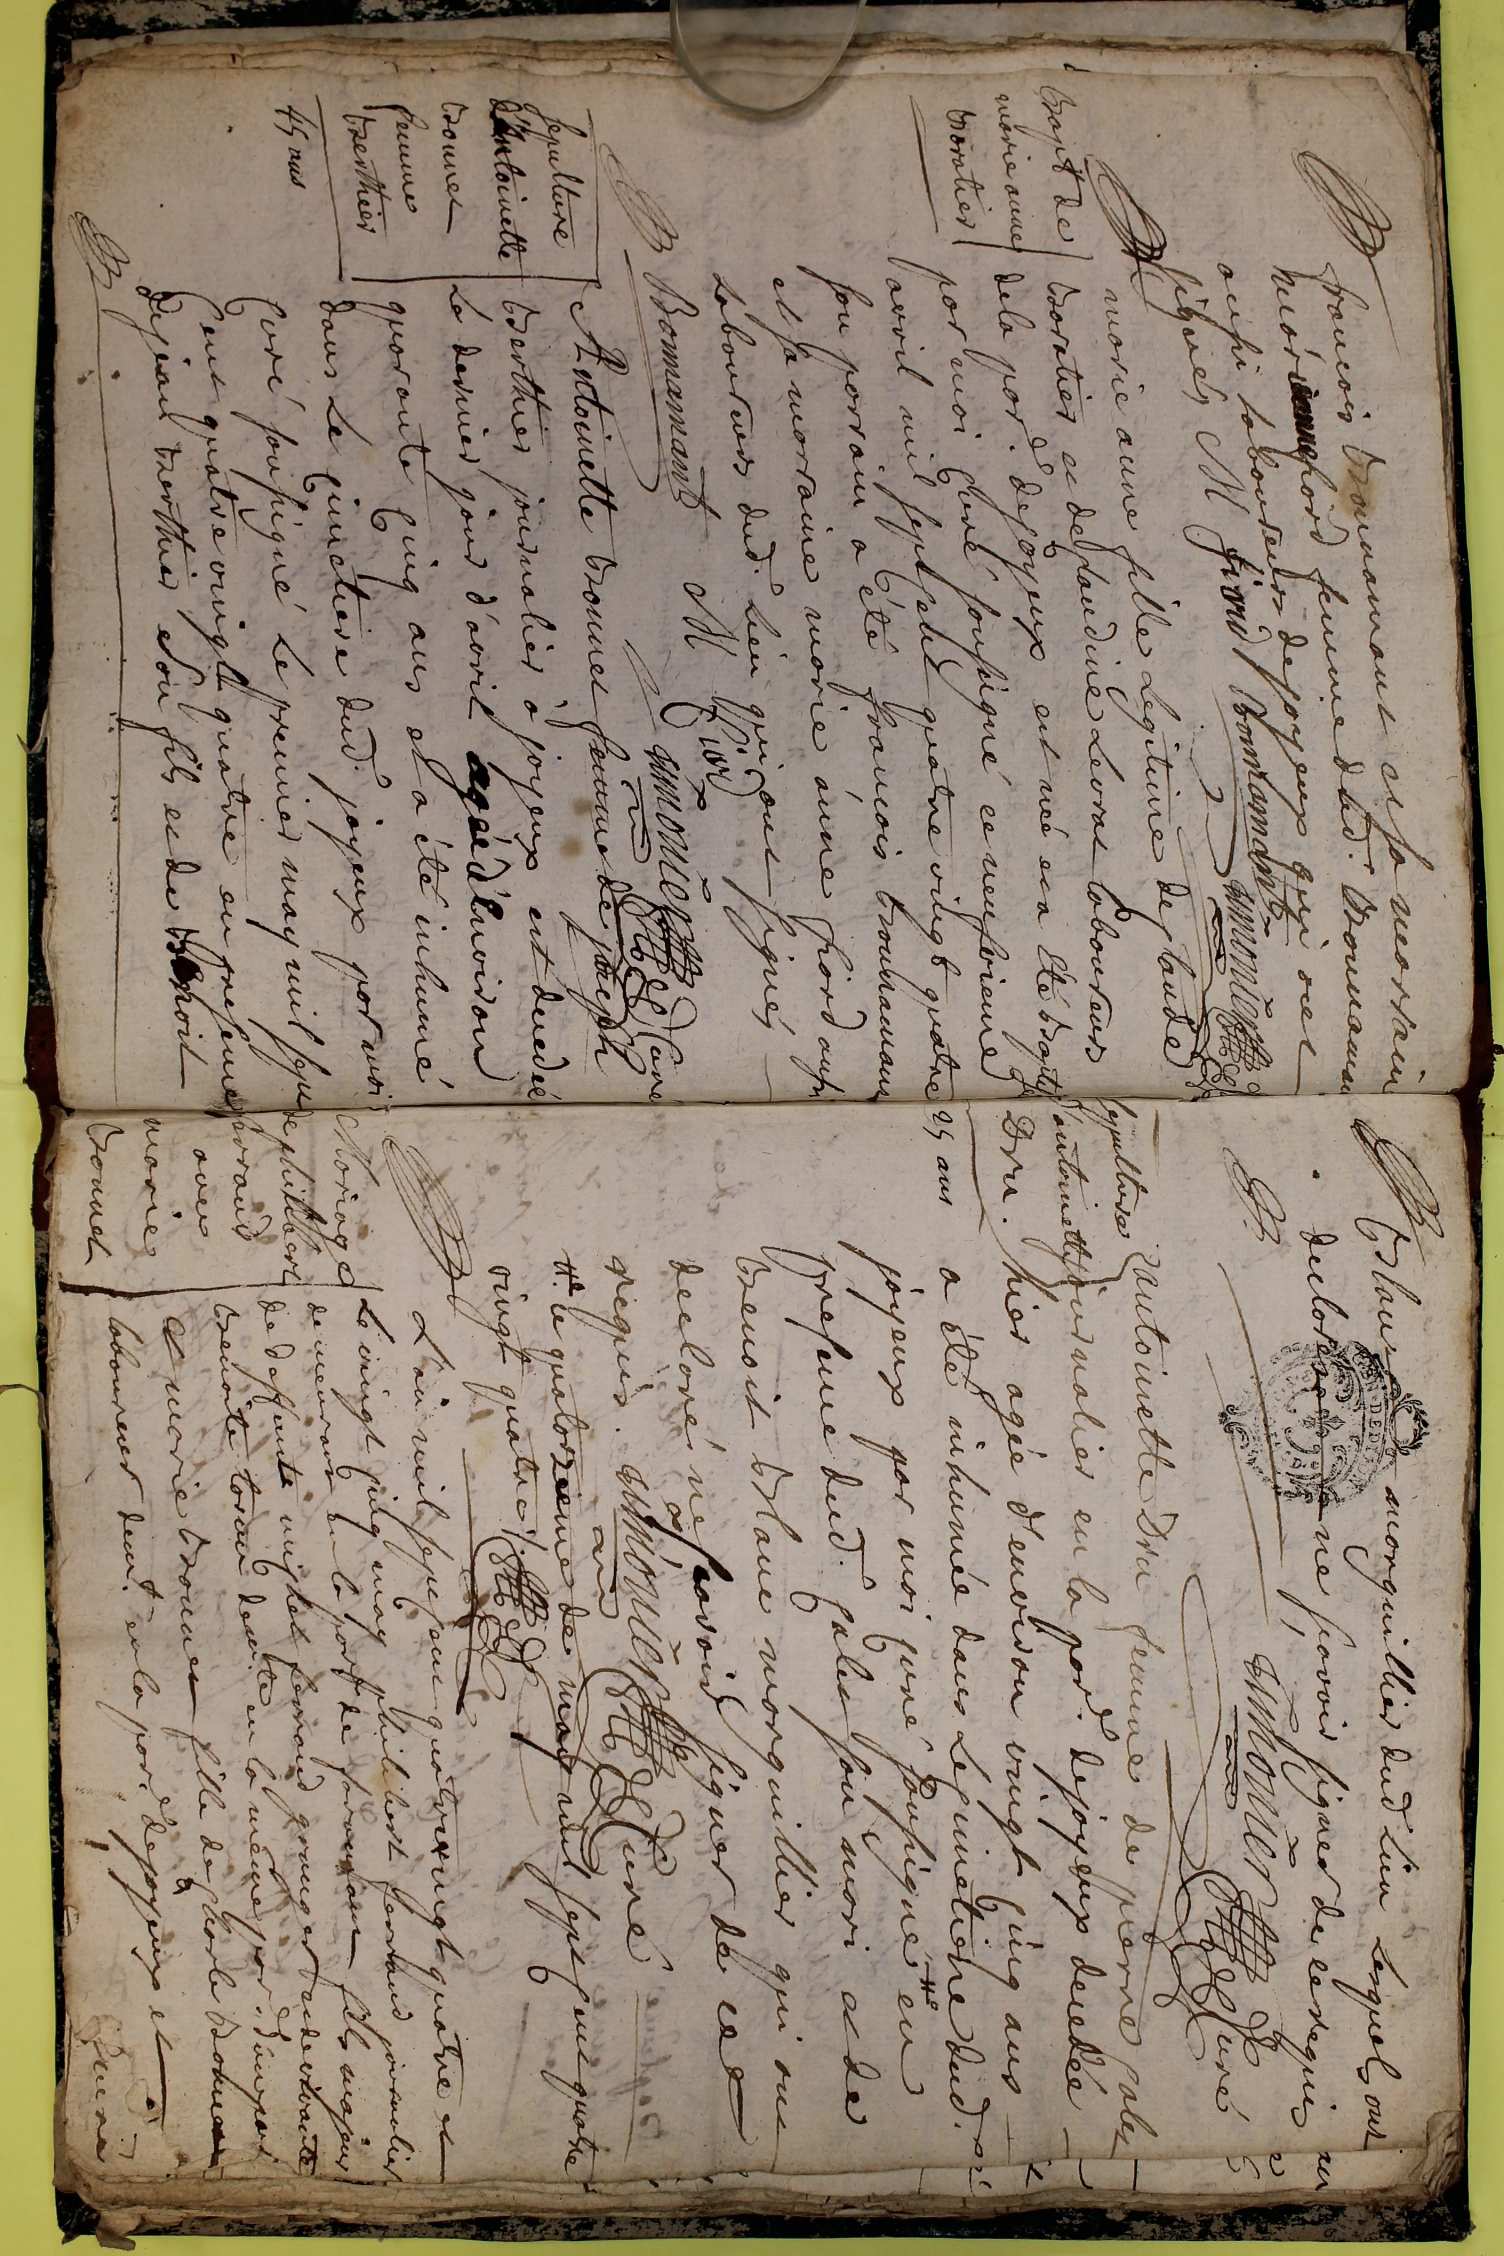 françois bonnamant et sa marraine
marieanne fiord femme dud. bonnamant
aussi laboureurs de joyeux qui ont
signés M fiord bonnamant
marie anne fille legitime de claude
bapt. de
marie anne
boratier
boratier et de claudine Levrat laboureurs
de la par. de joyeux est née et a été baptisée
par moi Curé soussigné ce neufvieme
avril mil sept cent quatre vingt quatre
son parrain a été françois bonnamant
et sa marraine marie anne fiord aussi
Laboureurs dud. Lieu qui ont signés
Bonnamant M fiord
Curé
sepulture
d'antoinette
bonnet
femme
berthier
45 ans
Antoinette bonnet femme de joseph
berthier journalier à joyeux est decedée
Le dernier jour d'avril agée d'environ
quarante Cinq ans et a été inhumé
dans Le Cimetiere dud. joyeux par moi
Curé soussigné Le premier may mil sept
Cent quatre vingt quatre en presence
de jean berthier son fils et de Benoit
Blanc marguillier dud. Lieu Lesquels ont
declaré ne savoir signer de ce requis
Curé
sepulture
d'antoinette
Dru.
25 ans
antoinette Dru femme de pierre Calet
journalier en la par. de joyeux decedée
hier agée d'environ vingt cinq ans
a été inhumée dans Le cimetiere dud.
joyeux par moi Curé soussigné # en
presence dud. Calet son mari et de
benoit blanc marguillier qui ont
declaré ne savoir signer de ce
requis.
Curé
# le quatorzieme de may mil sept cent quatre
vingt quatre.
Mariage
de philibert
ferrand
avec
marie
bonnet
L'an mil sept cent quatre vingt quatre et
Le vingt cinq may philibert ferrand journalier
demeurant en la par. de fils majeur
de deffunte michel ferrand granger et de vivante
benoite demte. en la même par. d'une part
et marie bonnet fille de Charle bonnet
laboureur demt. en la par. de joyeux et